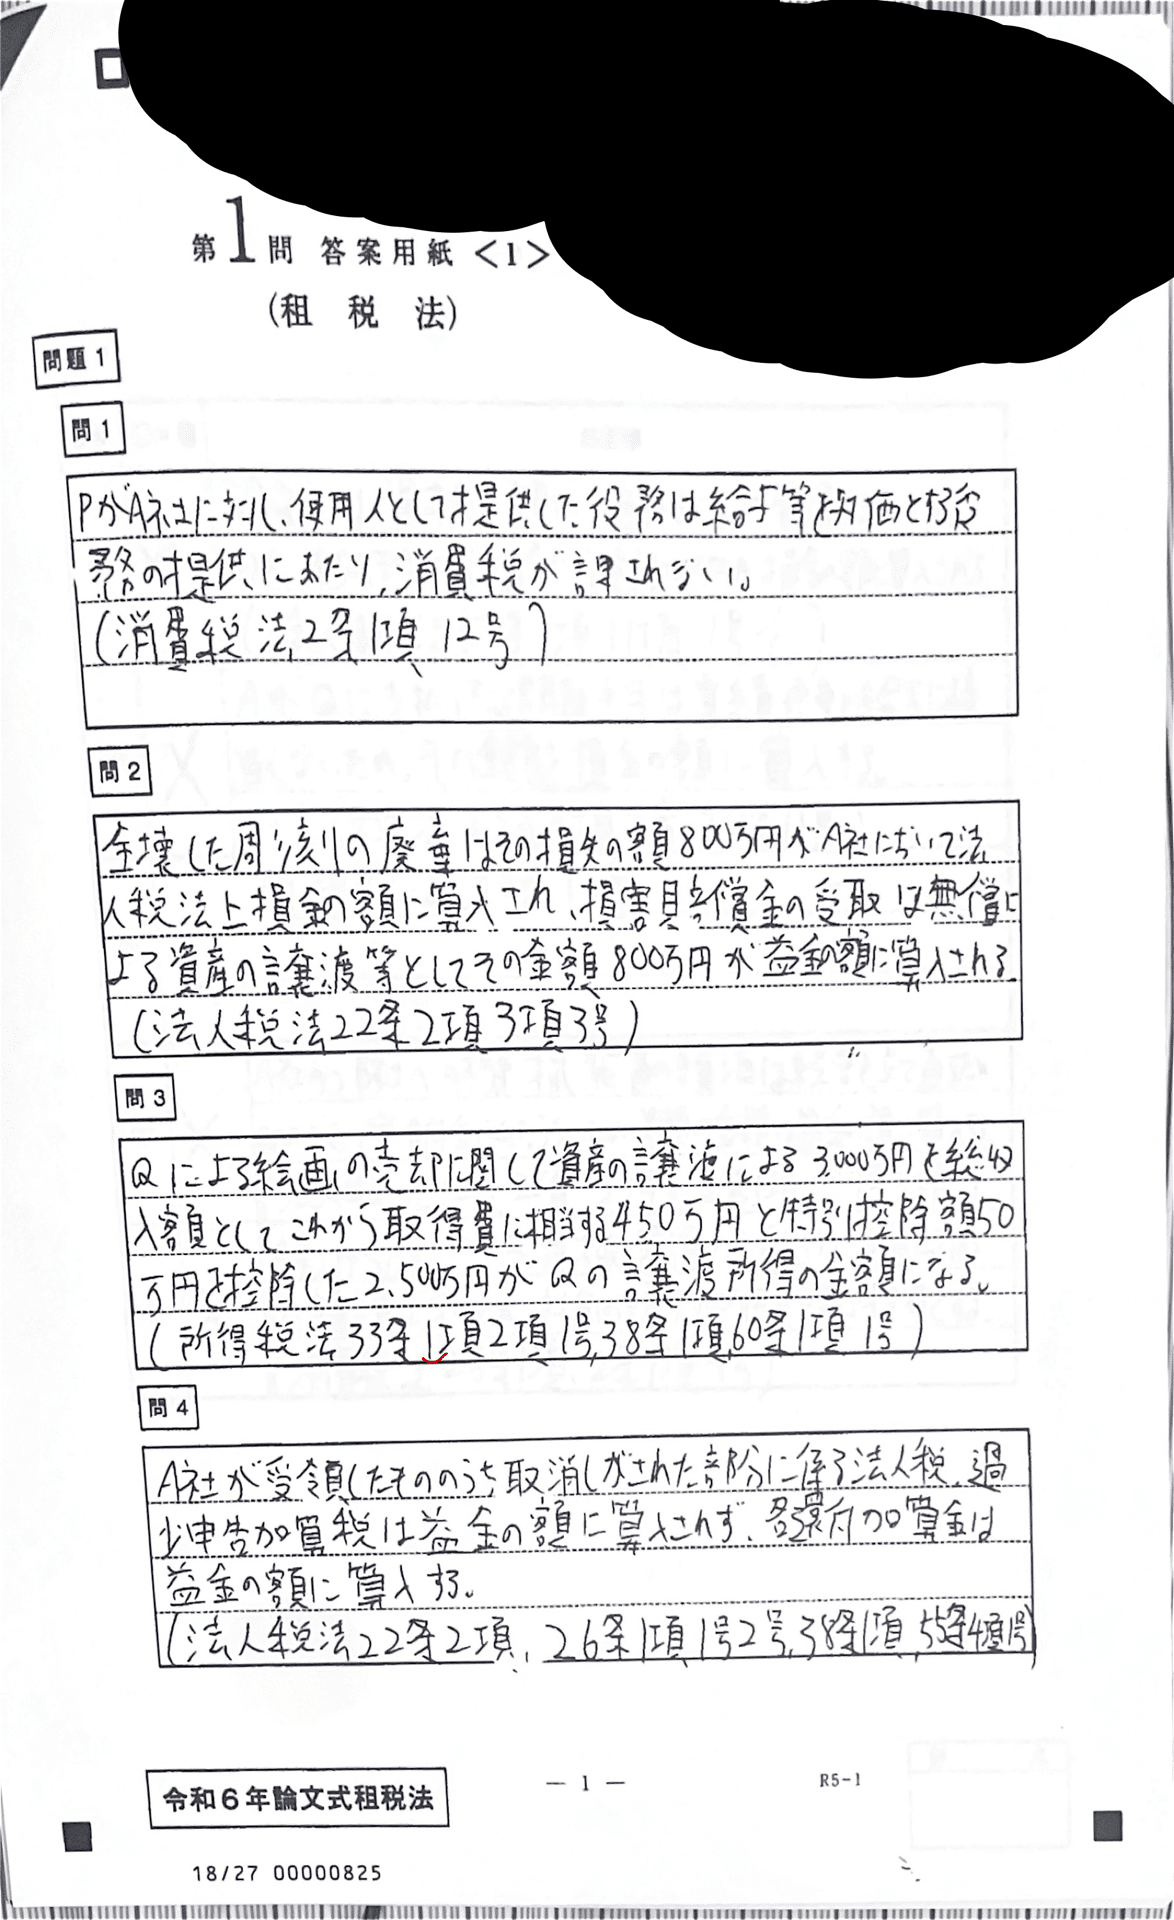 第1問 答案用紙<1>
(租税法)
問題1
問1
PがA社に対し、使用人として提供した役務は給与等を対価とする役
務の提供にあたり、消費税が課されない。
(消費税法2条1項12号)
問2
全壊した周り彫りの廃棄はその損失の額800万円がA社において法
人税法上損金の額に算入され、損害賠償金の受取は無償に
よる資産の譲渡等としてその金額800万円が益金の額に算入される
(法人税法22条2項3項3号)
問3
Qによる絵画の売却に関して資産の譲渡による3,000万円を総収
入額としてこれから取得費に相当する450万円と特別控除額50
万円を控除した2,500万円がQの譲渡所得の金額になる。
(所得税法33条1項2項1号,38条1項,60条1項1号)
問4
A社が受領したもののうち取消しがされた部分に係る法人税、過
少申告加算税は益金の額に算入されず、還付加算金は
益金の額に算入する。
(法人税法22条2項,26条1項1号2号,38条1項,55条4項1号)
令和6年論文式租税法
― 1 ―
R5-1
18/27 00000825